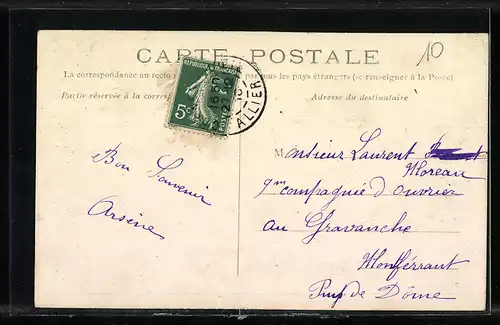 CARTE POSTALE
10
La correspondance au recto par tous les pays étrangers (se renseigner à la Poste)
Partie réservée à la corres
Adresse du destinataire
REPUBLIQUE FRANÇAISE
5c
POSTES
ALLIER
Bon Souvenir
Arsène
Monsieur Laurent
Moreau
9me compagnie d'ouvrier
au Gravanche
Montferrant
Puy de Dôme